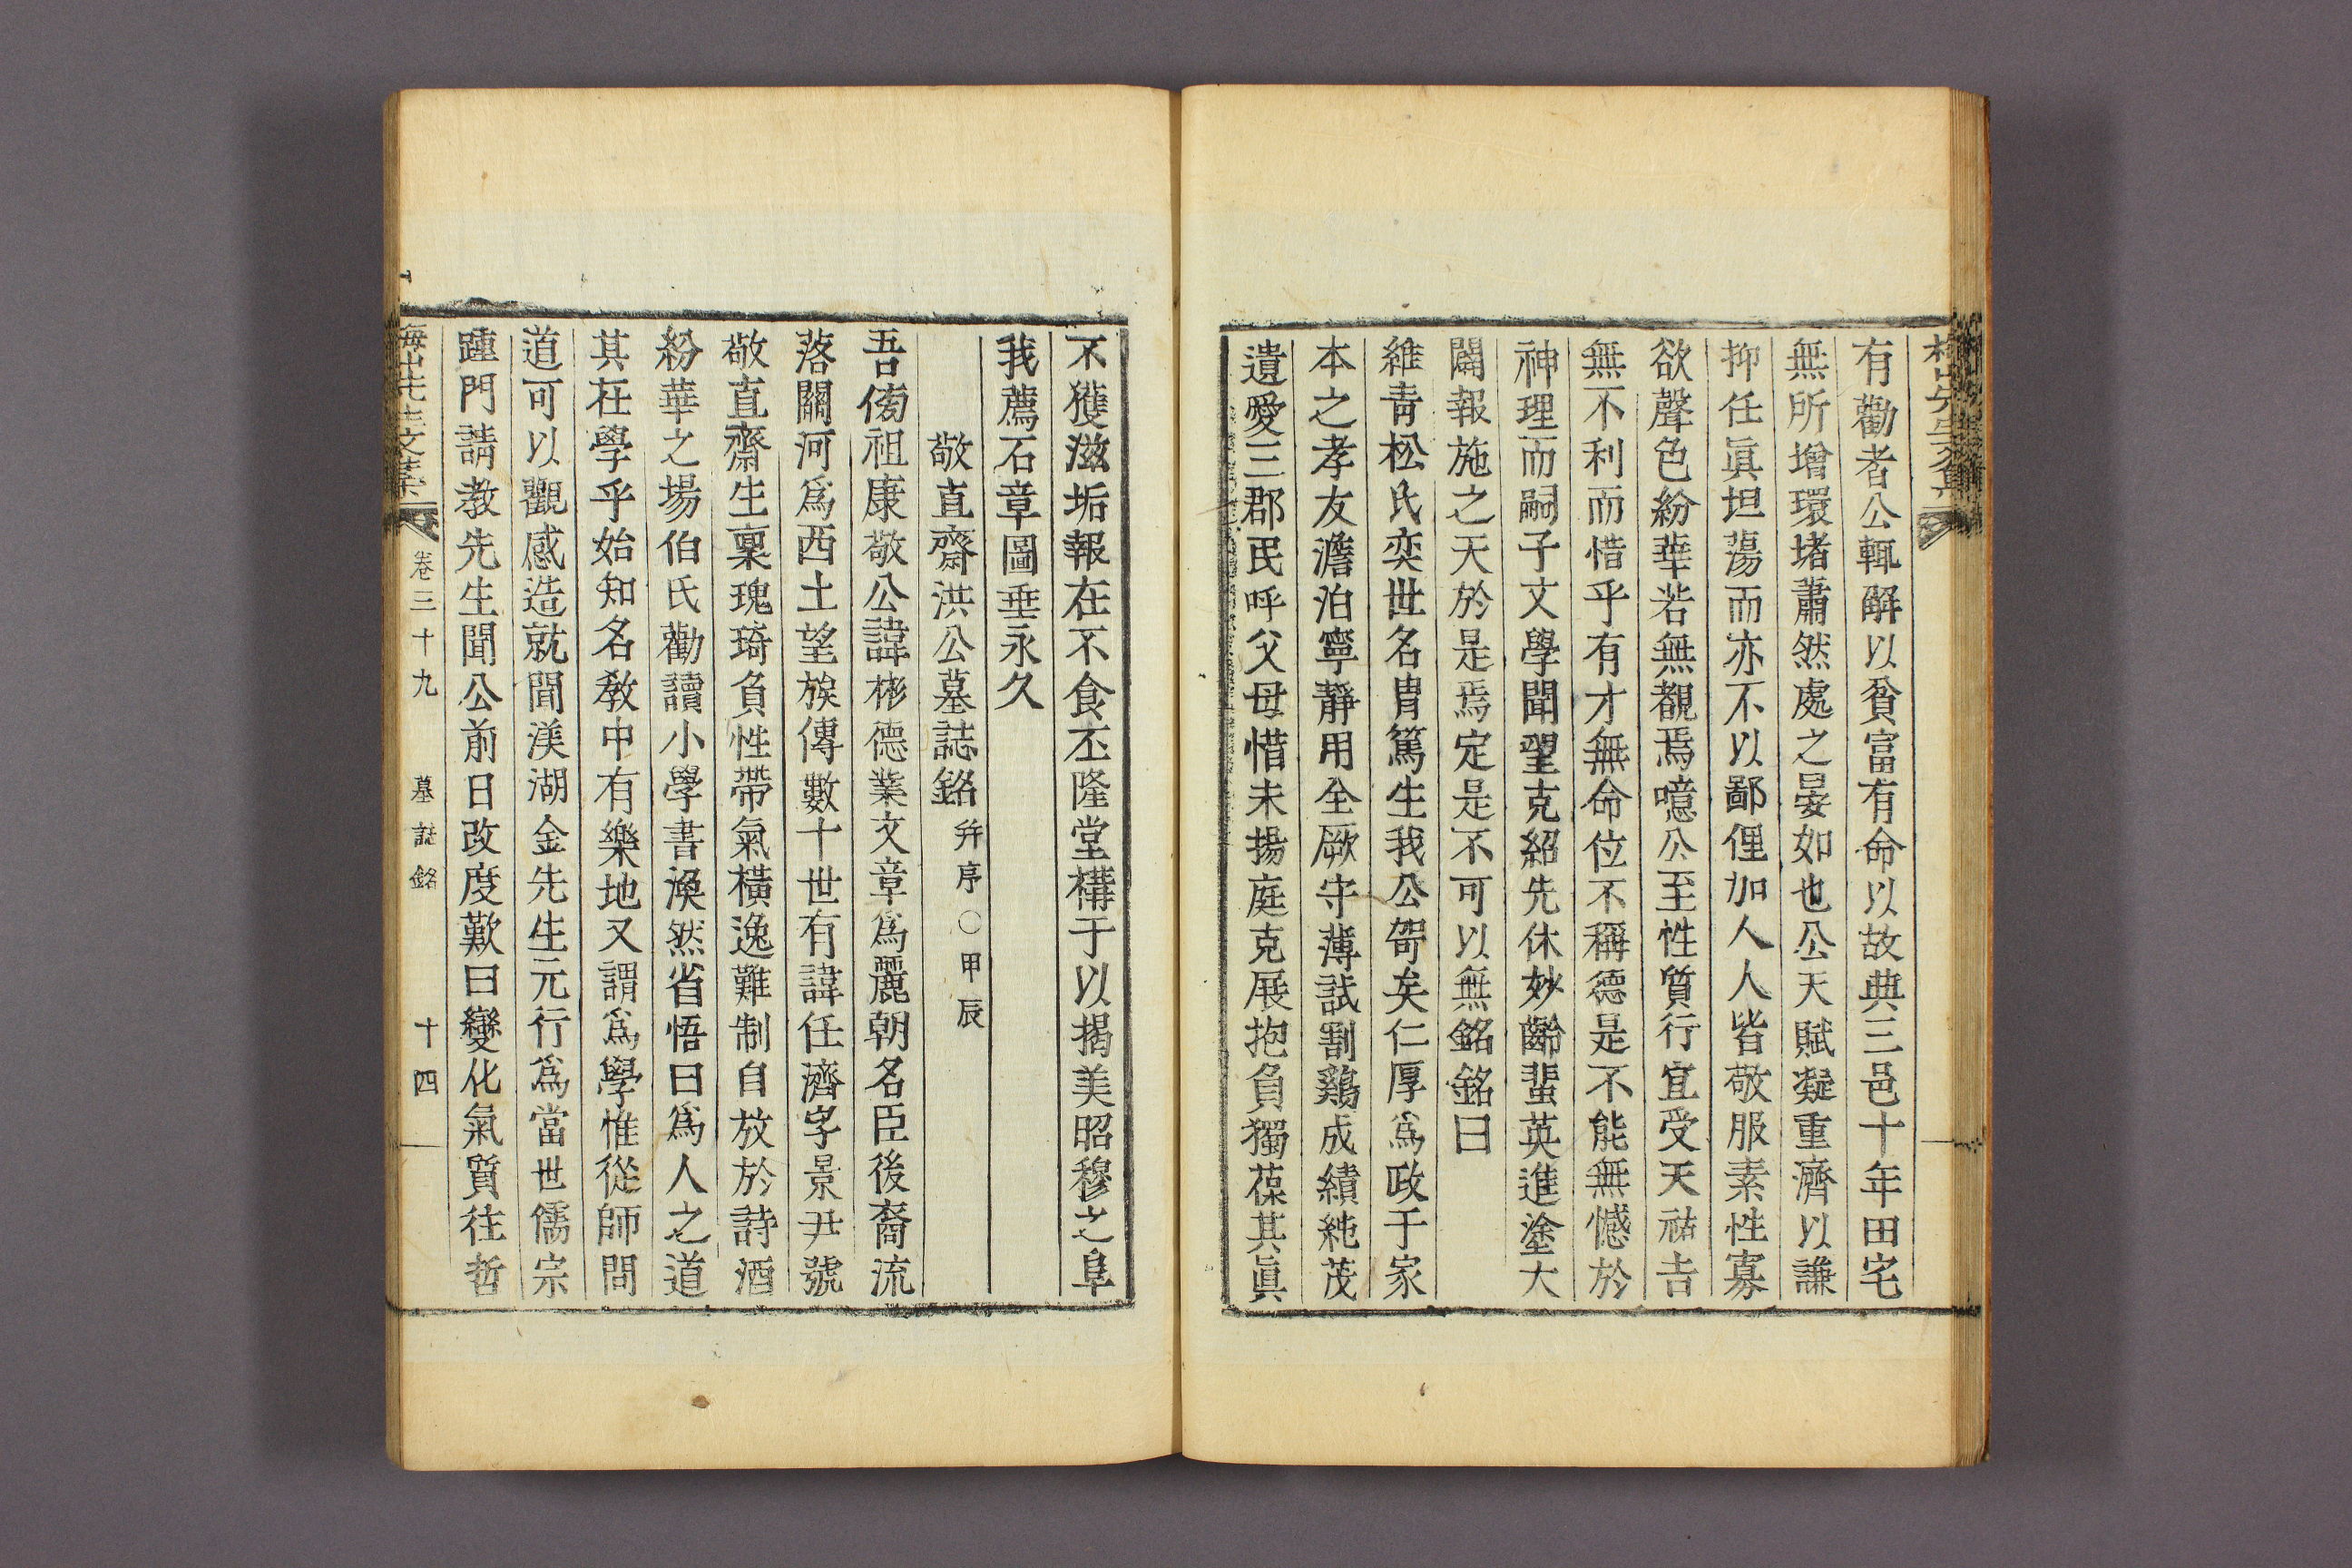 有勸者公輒解以貧富有命以故典三邑十年田宅
無所增環堵蕭然處之晏如也公天賦凝重濟以謙
抑任眞坦蕩而亦不以鄙俚加人人皆敬服素性寡
欲聲色紛華若無覩焉噫公至性質行宜受天祐吉
無不利而惜乎有才無命位不稱德是不能無憾於
神理而嗣子文學聞望克紹先休妙齡蜚英進塗大
闢報施之天於是焉定是不可以無銘銘曰
維靑松氏奕世名胄篤生我公哿矣仁厚爲政于家
本之孝友澹泊寧靜用全厥守薄試割鷄成績純茂
遺愛三郡民呼父母惜未揚庭克展抱負獨葆其眞
不獲滋垢報在不食丕隆堂構于以揭美昭穆之阜
我薦石章圖垂永久
敬直齋洪公墓誌銘 幷序○甲辰
吾傍祖康敬公諱彬德業文章爲麗朝名臣後裔流
落關河爲西土望族傳數十世有諱任濟字景尹號
敬直齋生稟瑰琦負性帶氣橫逸難制自放於詩酒
紛華之場伯氏勸讀小學書渙然省悟曰爲人之道
其在學乎始知名敎中有樂地又謂爲學惟從師問
道可以觀感造就聞渼湖金先生元行爲當世儒宗
踵門請敎先生聞公前日改度歎曰變化氣質往哲
梅山先生文集 卷三十九 墓誌銘 十四